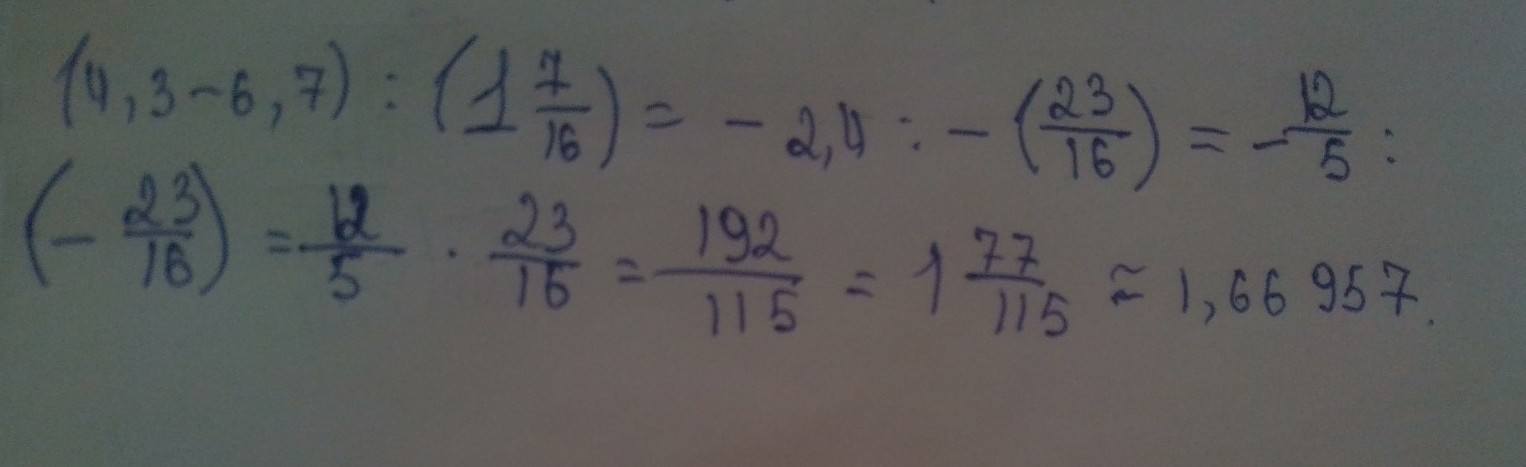 (4,3-6,7) : (1 7/16) = - 2,4 : - (23/16) = - 12/5 :
(- 23/16) = 12/5 · 23/16 = 192/115 = 1 77/115 ≈ 1,66957.